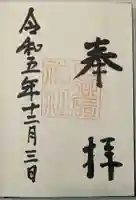 奉拝
令和五年十二月三日